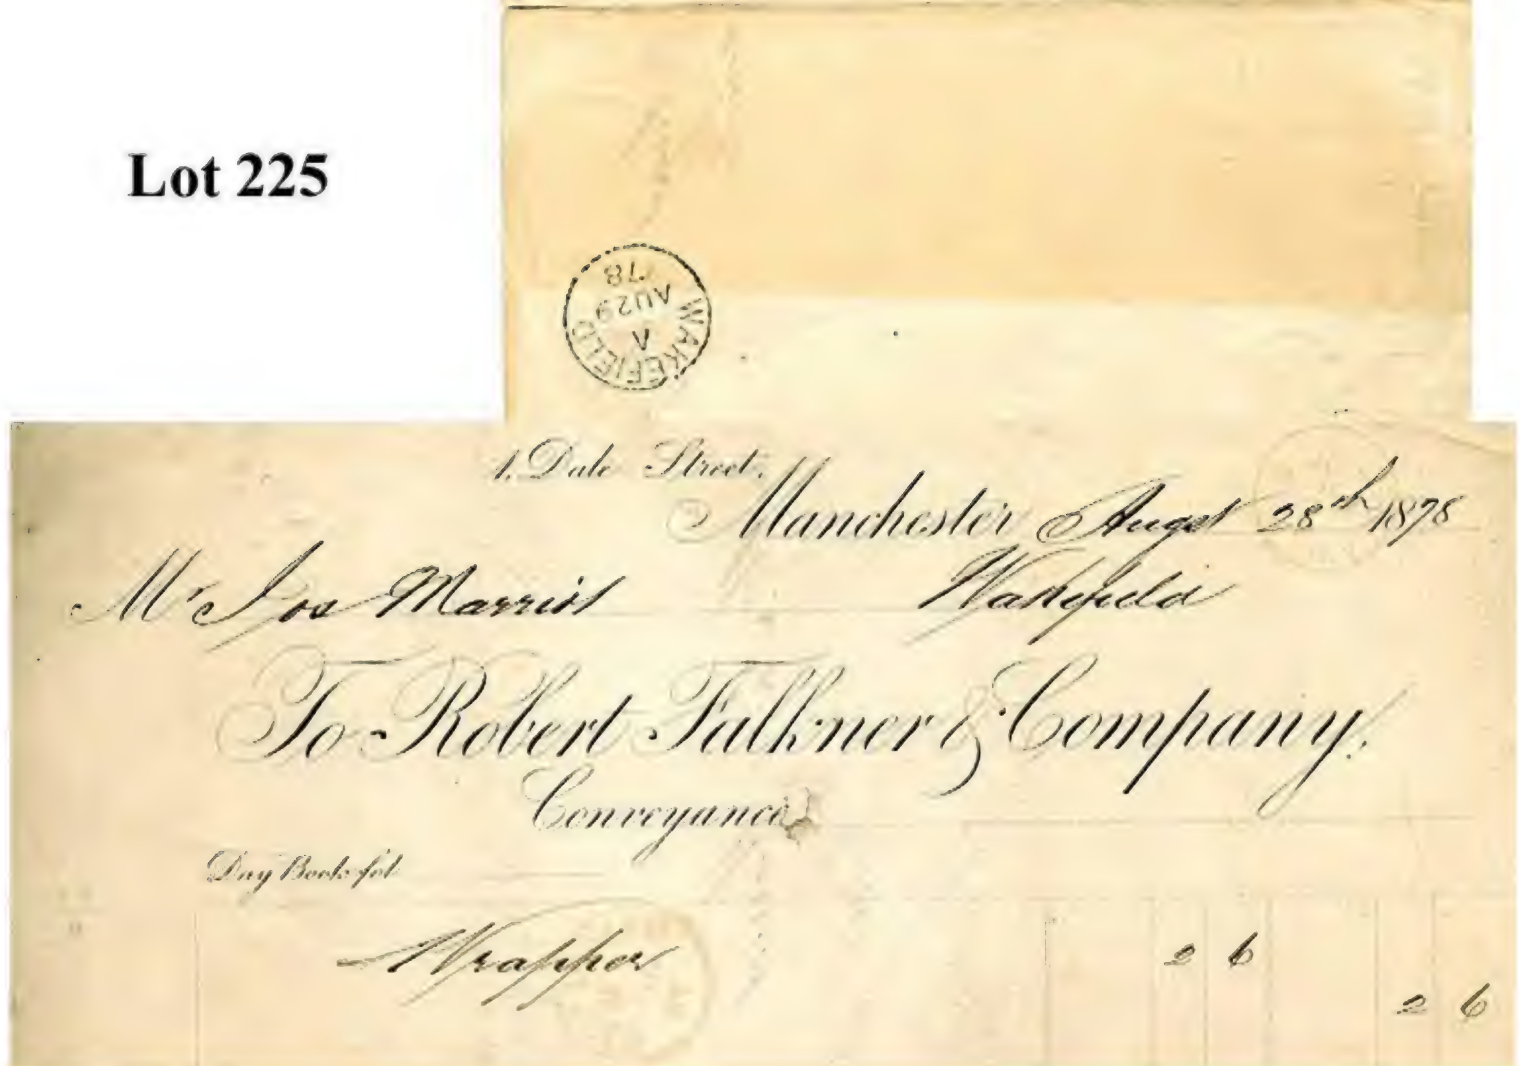 Lot 225
WAKEFIELD
A
AU 29
78
1, Dale Street,
Manchester Augst 28th 1878
Mr Jos Marriott Wakefield
To Robert Falkner & Company.
Conveyance
Day Book fol
Wrapper 2 6
2 6